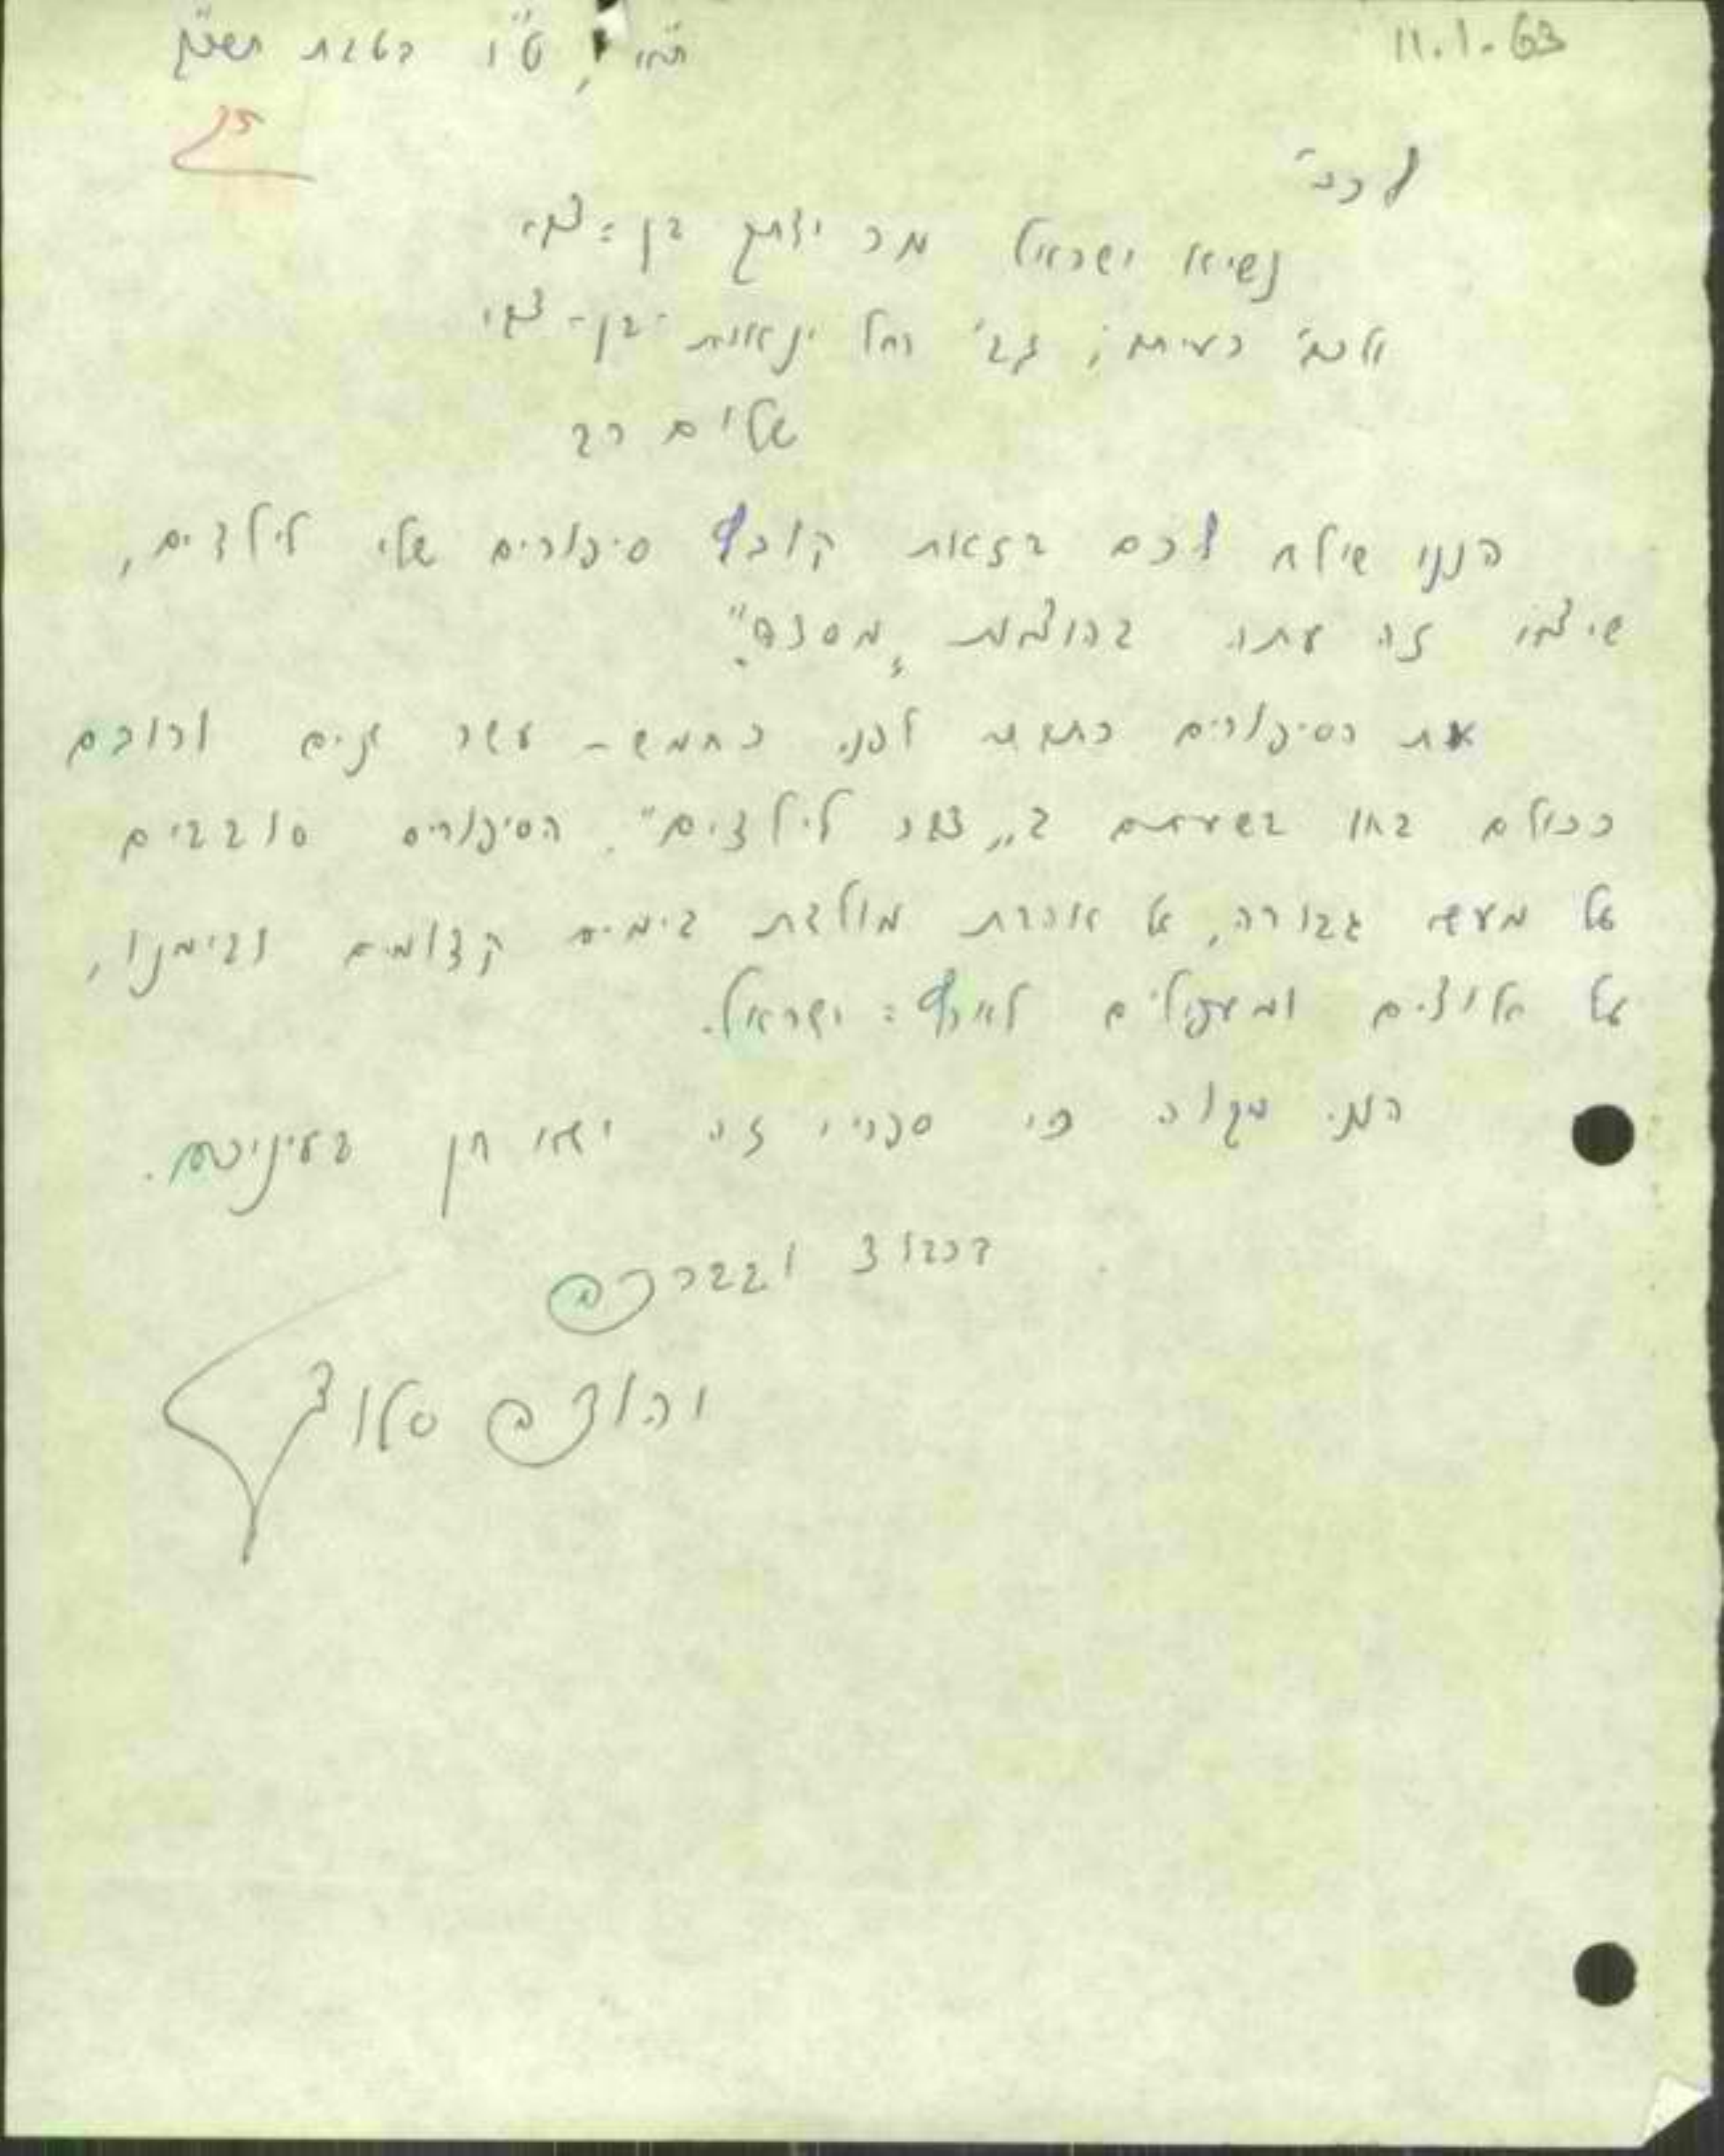 11.1.63
ת"א, ט"ו בטבת תשכ"ג
לכב'
נשיא ישראל מר יצחק בן=צבי
ולכב' רעיתו, גב' רחל ינאית בן-צבי
שלום רב
הנני שולח לכם בזאת קובץ סיפורים שלי לילדים,
שיצאו זה עתה בהוצאת "מסדה".
את הסיפורים כתבתי לפני כחמש-עשר שנים ורובם
ככולם באו בשעתם ב"דבר לילדים". הסיפורים סובבים
על מעשי גבורה, על אהבת מולדת בימים קדומים ובימנו,
על חלוצים ומעפילים לארץ=ישראל.
הנני מקוה כי ספריי זה ישאו חן בעיניכם.
בכבוד ובברכה
יהודה סלוצ